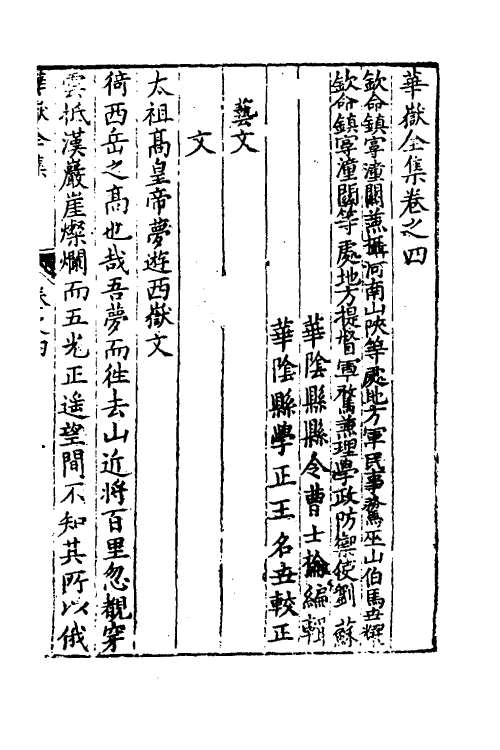 華嶽全集卷之四
欽命鎮寧潼關兼攝河南山陝等處地方軍民事務巫山伯馬世耀
欽命鎮寧潼關等處地方提督軍務兼理學政防禦使劉 蘇
華陰縣縣令曹士掄編輯
華陰縣學正王名世較正
藝文
文
太祖高皇帝夢遊西嶽文
猗西岳之高也哉吾夢而徃去山近將百里忽觀穿
雲抵漢巖崖燦爛而五光正遥望間不知其所以俄
華嶽全集 卷之四